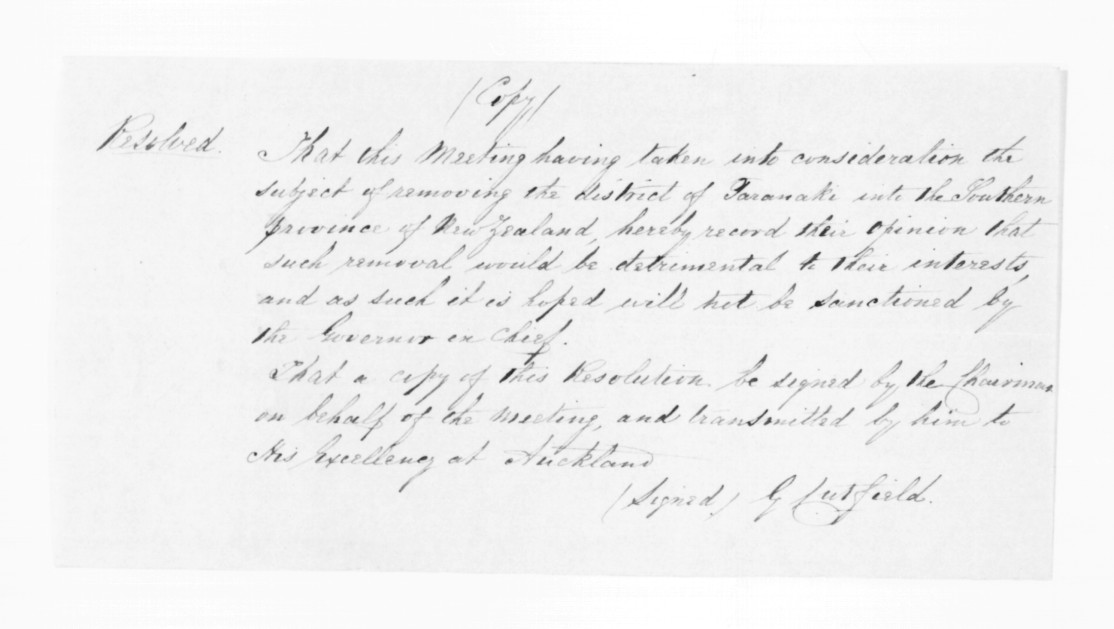 (Copy)
Resolved. That this Meeting having taken into consideration the
subject of removing the district of Taranaki into the Southern
Province of New Zealand, hereby record their opinion that
such removal would be detrimental to their interests,
and as such it is hoped will not be sanctioned by
the Governor in Chief.
That a copy of this Resolution be signed by the Chairman
on behalf of the Meeting, and transmitted by him to
His Excellency at Auckland
(Signed) G Cutfield.